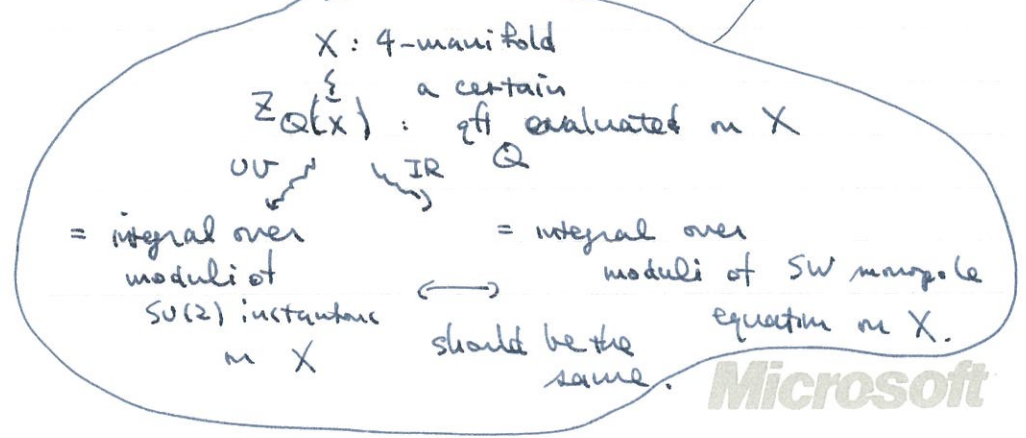 X : 4-manifold
a certain
Z_Q(X) : qft Q evaluated on X
UV IR
= integral over
moduli of
SU(2) instantons
on X
↔
should be the
same.
= integral over
moduli of SW monopole
equation on X.
Microsoft